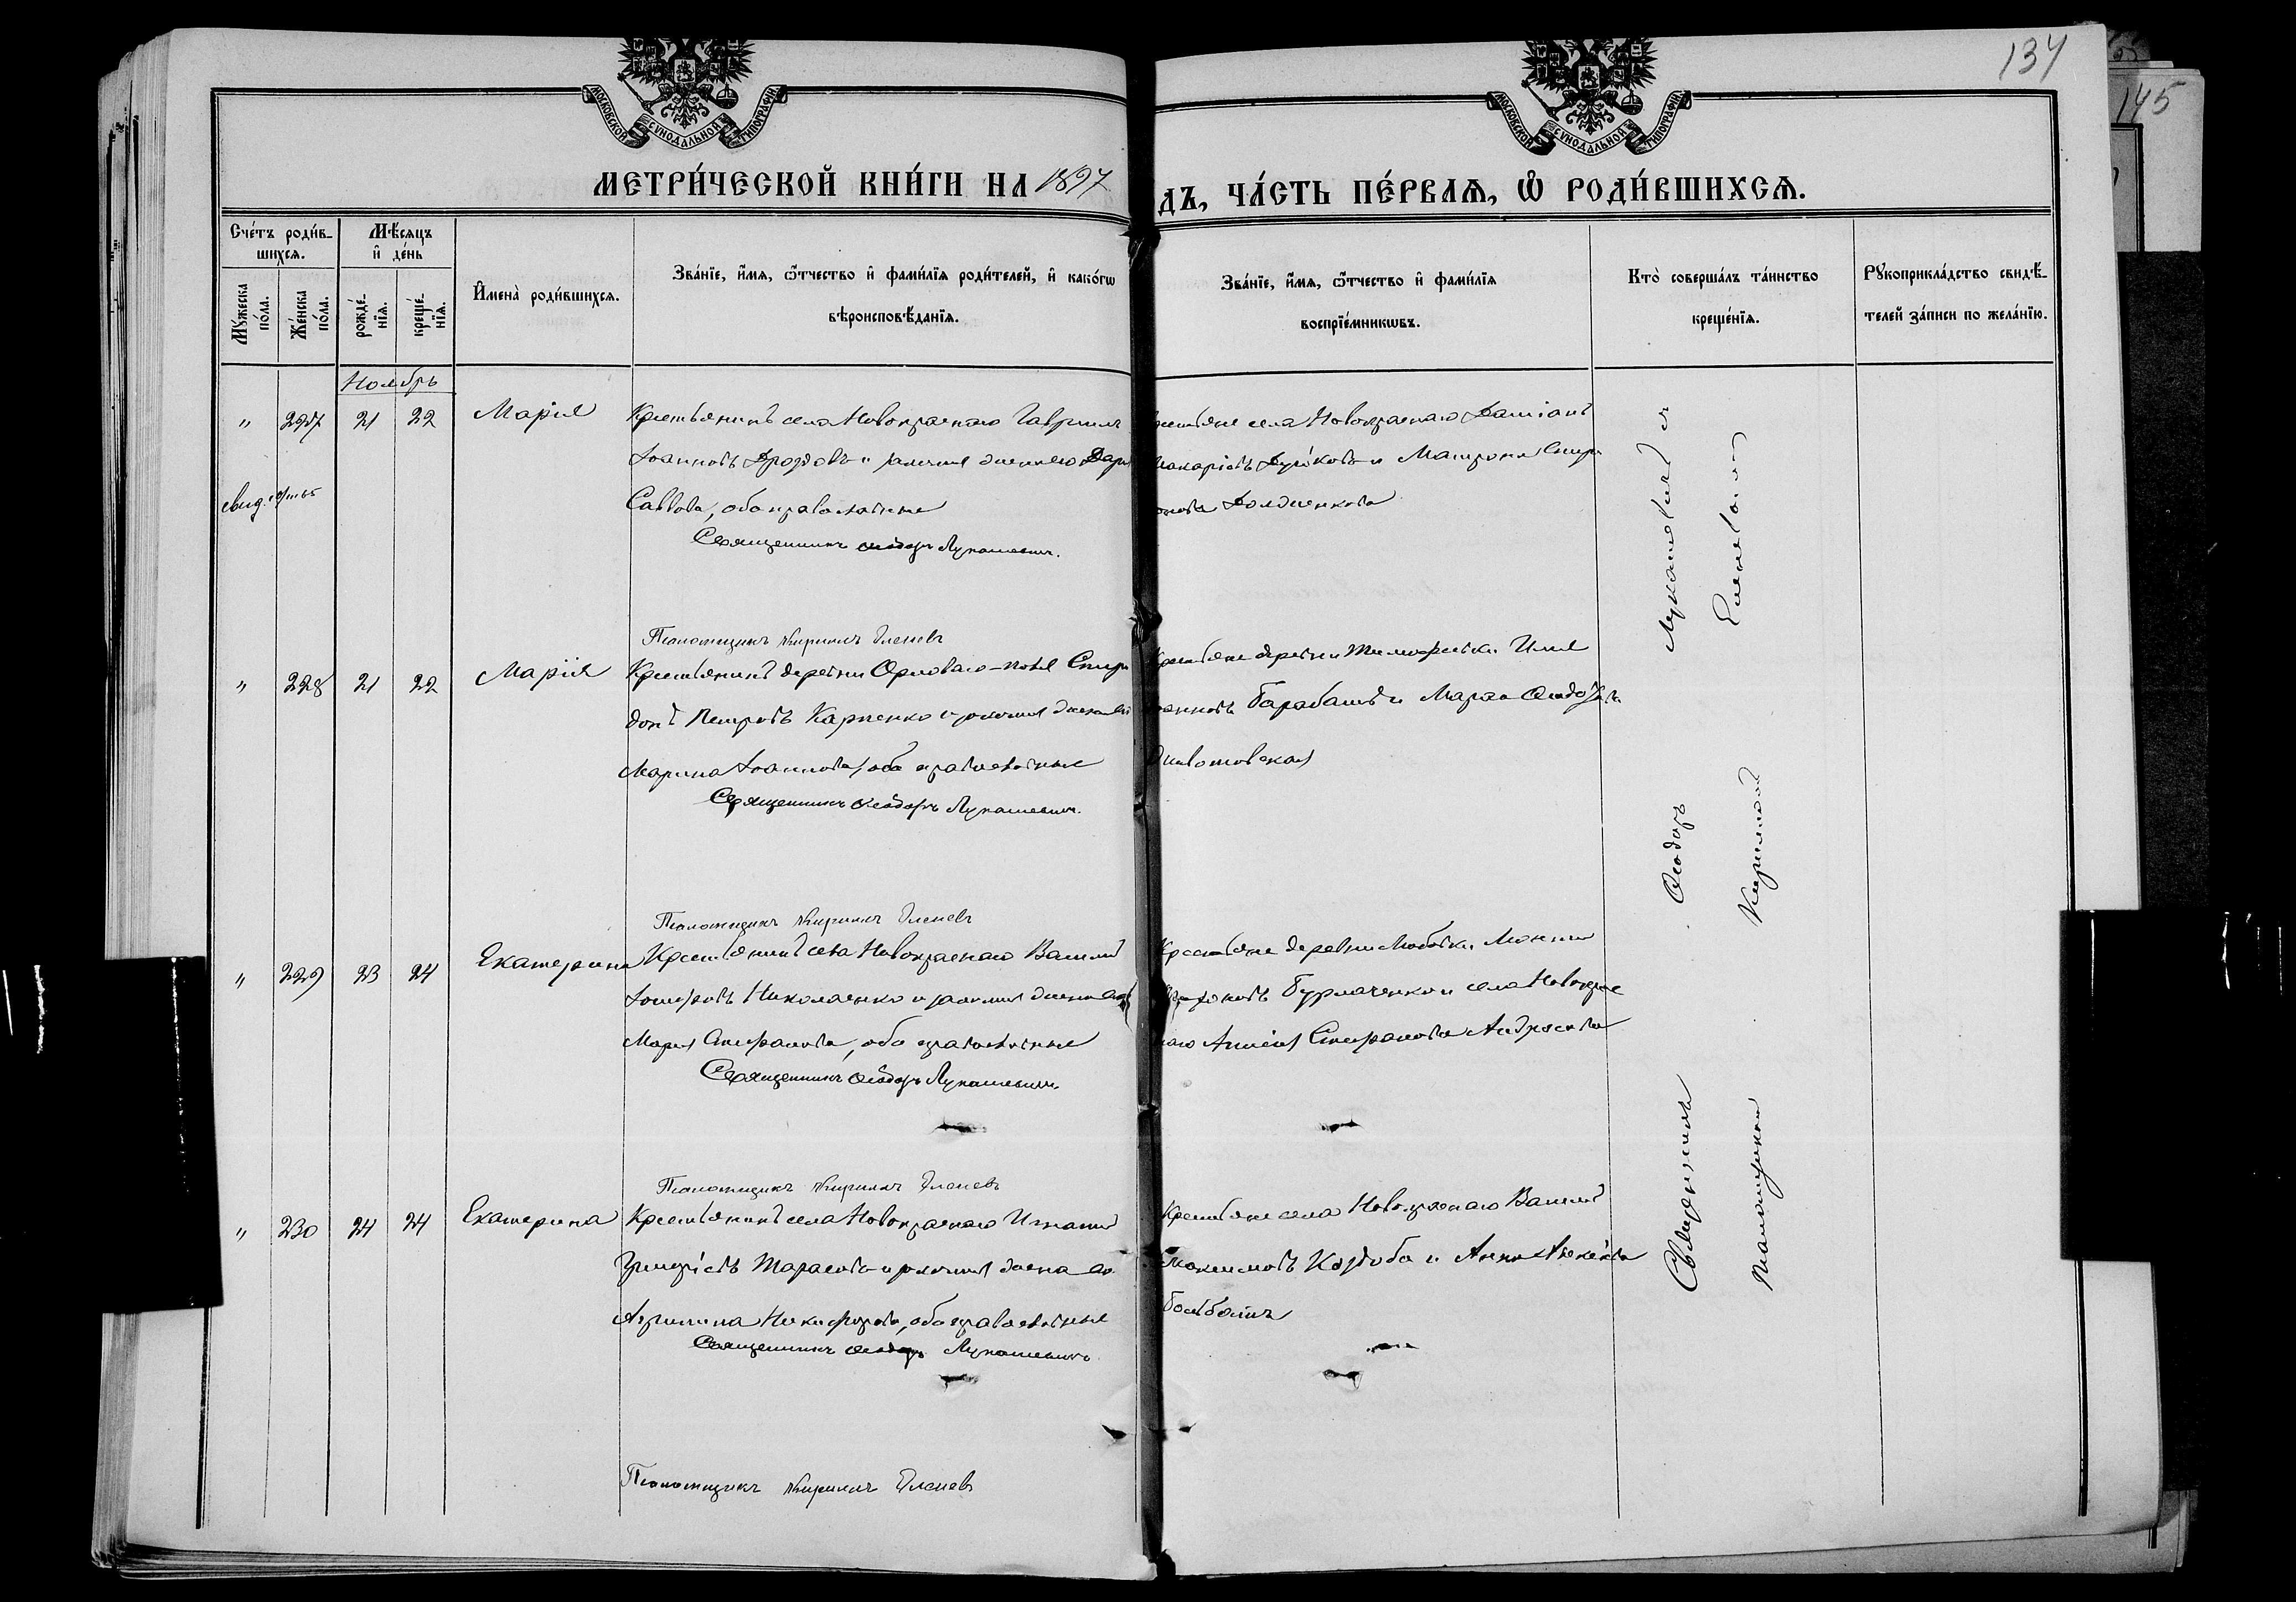 134
145
МОСКОВСКОЙ СУНОДАЛЬНОЙ ТИПОГРАФІИ
МОСКОВСКОЙ СУНОДАЛЬНОЙ ТИПОГРАФІИ
МЕТРИ́ЧЕСКОЙ КНИ́ГИ НА 1897
ДЪ, ЧА́СТЬ ПЕ́РВАЯ, Ѡ РОДИ́ВШИХСЯ.
Сче́тъ роди́в-
шихся.
Му́жеска по́ла.
Же́нска по́ла.
Мѣ́сяцъ
и҆ де́нь
рожде́-нїя.
креще́-нїя.
И҆мена̀ роди́вшихся.
Зва́нїе, и҆́мя, ѻ҆́тчество и҆ фами́лїя роди́телей, и҆ како́гѡ
вѣроисповѣ́данїя.
Зва́нїе, и҆́мя, ѻ҆́тчество и҆ фами́лїя
воспрїе́мникѡвъ.
Кто̀ соверша́лъ та́инство
креще́нїя.
Рꙋкоприкла́дство свидѣ́-
телей за́писи по жела́нїю.
Ноябрь
" 227 21 22 Марія Крестьянинъ села Новокраснаго Гавриилъ
Іоанновъ Дроздовъ и законная жена его Дарія
Саввова, оба православные
Священникъ Ѳеодоръ Лукашевичъ.
Псаломщикъ Кириллъ Еленевъ
крестьяне села Новокраснаго Даміанъ
Макаріевъ и Матрона
свид.
" 228 21 22 Марія Крестьянинъ деревни Орловаго-поля Спири
донъ Петровъ Карпенко и законная жена его
Марина Іоаннова, оба православные
Священникъ Ѳеодоръ Лукашевичъ.
Псаломщикъ Кириллъ Еленевъ
Крестьяне деревни Тимофеевки Илія
Іоанновъ Барабашъ и
Животовская
" 229 23 24 Екатерина Крестьянинъ села Новокраснаго Василій
Іосифовъ Николаенко и законная жена его
Марія Стефанова, оба православные
Священникъ Ѳеодоръ Лукашевичъ.
Псаломщикъ Кириллъ Еленевъ
Крестьяне деревни Любовки
Бурлаченко и села Новокрас
наго Стефанова Андросова
" 230 24 24 Екатерина Крестьянинъ села Новокраснаго Игнатій
Григоріевъ Тарасовъ и законная жена его
Агрипина Никифорова, оба православные
Священникъ Ѳеодоръ Лукашевичъ
Псаломщикъ Кириллъ Еленевъ
Крестьяне села Новокраснаго Василій
Максимовъ Коздоба и Анна
Священникъ Ѳеодоръ Лукашевичъ и
Псаломщикъ Кириллъ Еленевъ